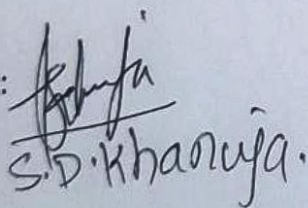 :
S.D.Khanuja.